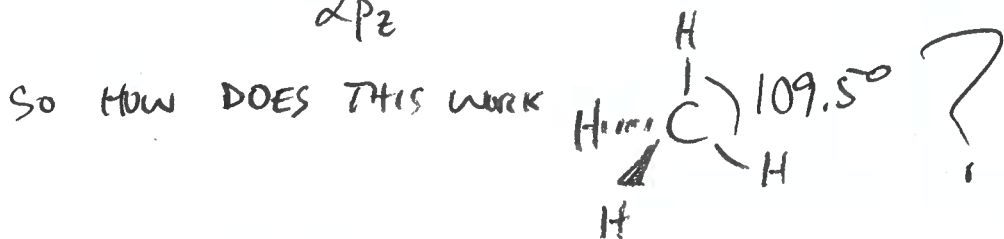 αPz
H
SO HOW DOES THIS WORK H C 109.5° ?
H
H